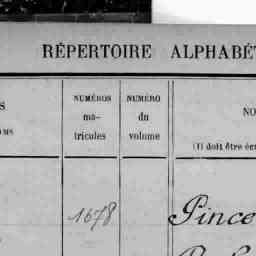 RÉPERTOIRE ALPHABÉ
NUMÉROS
ma-
tricules
NUMÉRO
du
volume
NO
(Il doit être éc
S
OMS
1678
Pince